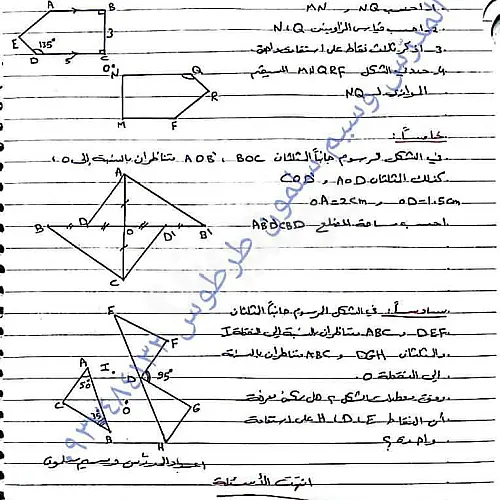 1. احسب NQ و MN
2. واحسب قياس الزاويتين N و Q
3. اذكر ثلاث نقاط على استقامة واحدة
4. حدد في الشكل MNQRF المستقيم
الموازي لـ NQ
A B E 135° D 5 C 3
N Q R M F
خامساً:
في الشكل المرسوم جانباً المثلثان BOC ، AOB' متناظران بالنسبة إلى O
كذلك المثلثان AOD و COD'
OD=1.5cm و OA=2cm
احسب مساحة المضلع
A B D O D' B' C
سادساً: في الشكل المرسوم جانباً المثلثان
DEF و ABC متناظران بالنسبة إلى النقطة I
والمثلثان DGH و ABC متناظران بالنسبة
إلى النقطة O
معطيات الشكل هل يمكن معرفة
أن النقاط H، D، E على استقامة
واحدة؟
E F A I D 95° 50° C O G B H
إعداد المدرس وسيم سلمون
انتهت الأسئلة
المدرس وسيم سلمون طرطوس